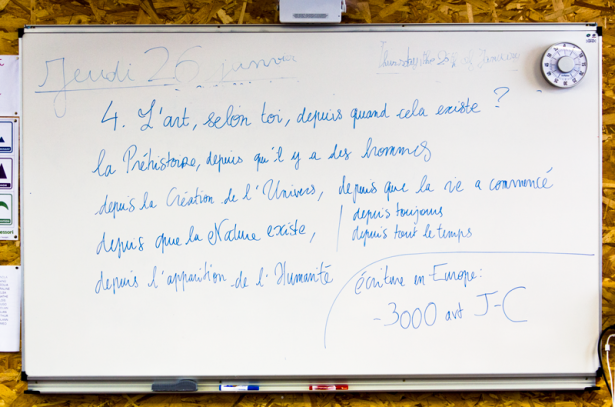 Jeudi 26 janvier
Thursday the 26th of January
4. L'art, selon toi, depuis quand cela existe ?
la Préhistoire, depuis qu'il y a des hommes
depuis la Création de l'Univers, depuis que la vie a commencé
depuis toujours
depuis que la Nature existe,
depuis tout le temps
depuis l'apparition de l'Humanité
écriture en Europe:
-3000 avt J-C